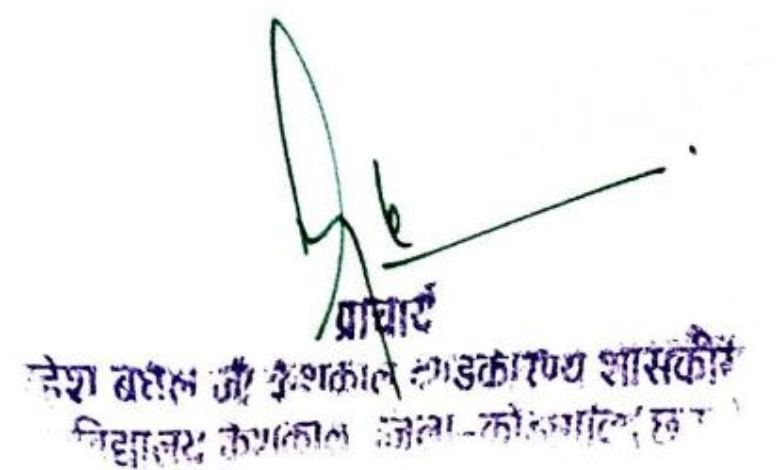 प्राचार्य
बघेल जी केशकाल दण्डकारण्य शासकीय
विद्यालय केशकाल जिला-कोण्डागांव